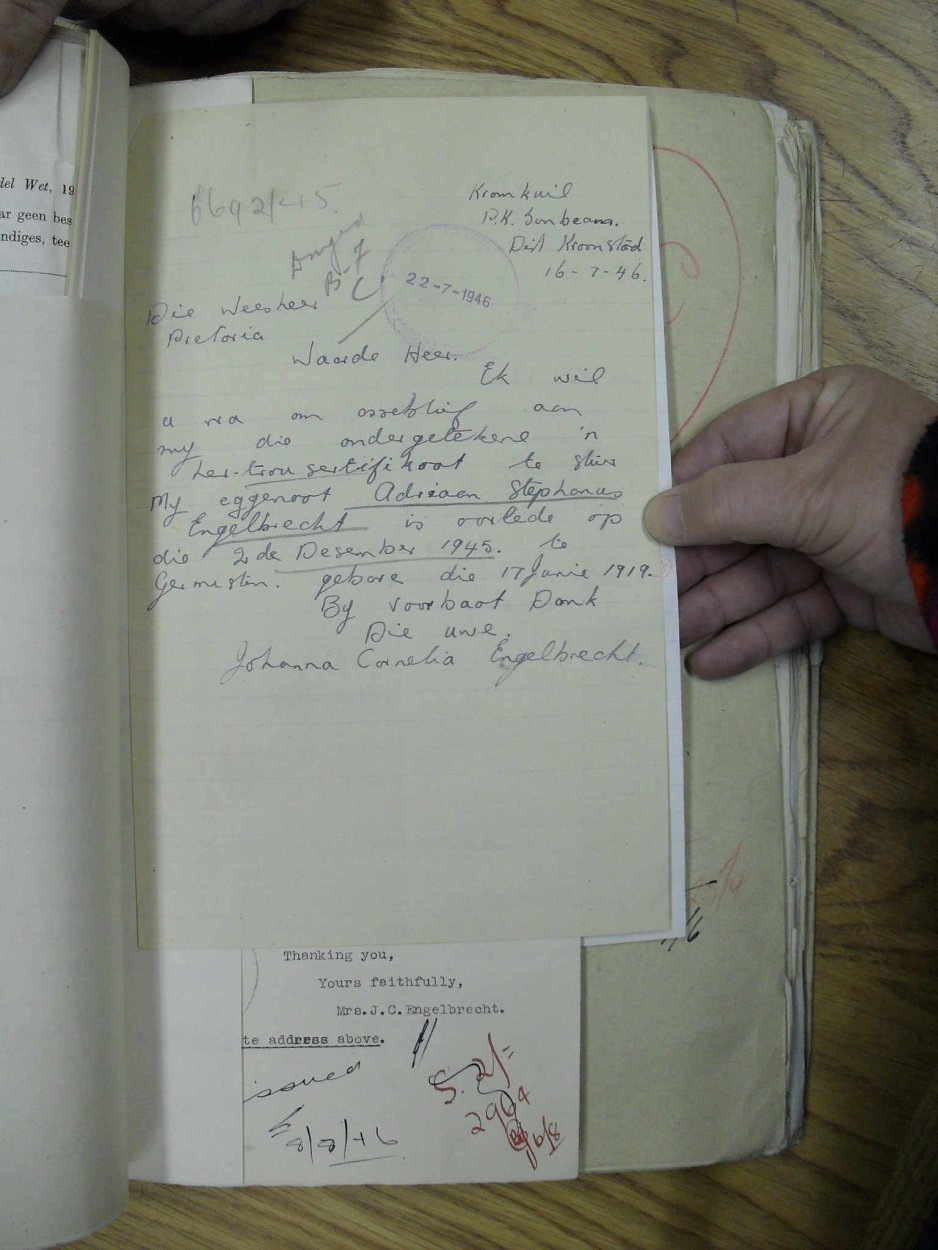 del Wet, 19
ar geen bes
ndiges, tee
6692/45.
Kromkuil
P.K. Sunbeam.
Dist Kroonstad
16-7-46.
22-7-1946
Die Weesheer
Pretoria
Waarde Heer.
Ek wil
u vra om asseblief aan
my die ondergetekene 'n
her-trou sertifikaat te stuur
My eggenoot Adriaan Stephanus
Engelbrecht is oorlede op
die 2de Desember 1945. te
Germiston. gebore die 17 Junie 1919.
By voorbaat Dank
Die uwe.
Johanna Cornelia Engelbrecht.
Thanking you,
Yours faithfully,
Mrs.J.C.Engelbrecht.
te address above.
issued
8/8/46
S. 2/=
2964